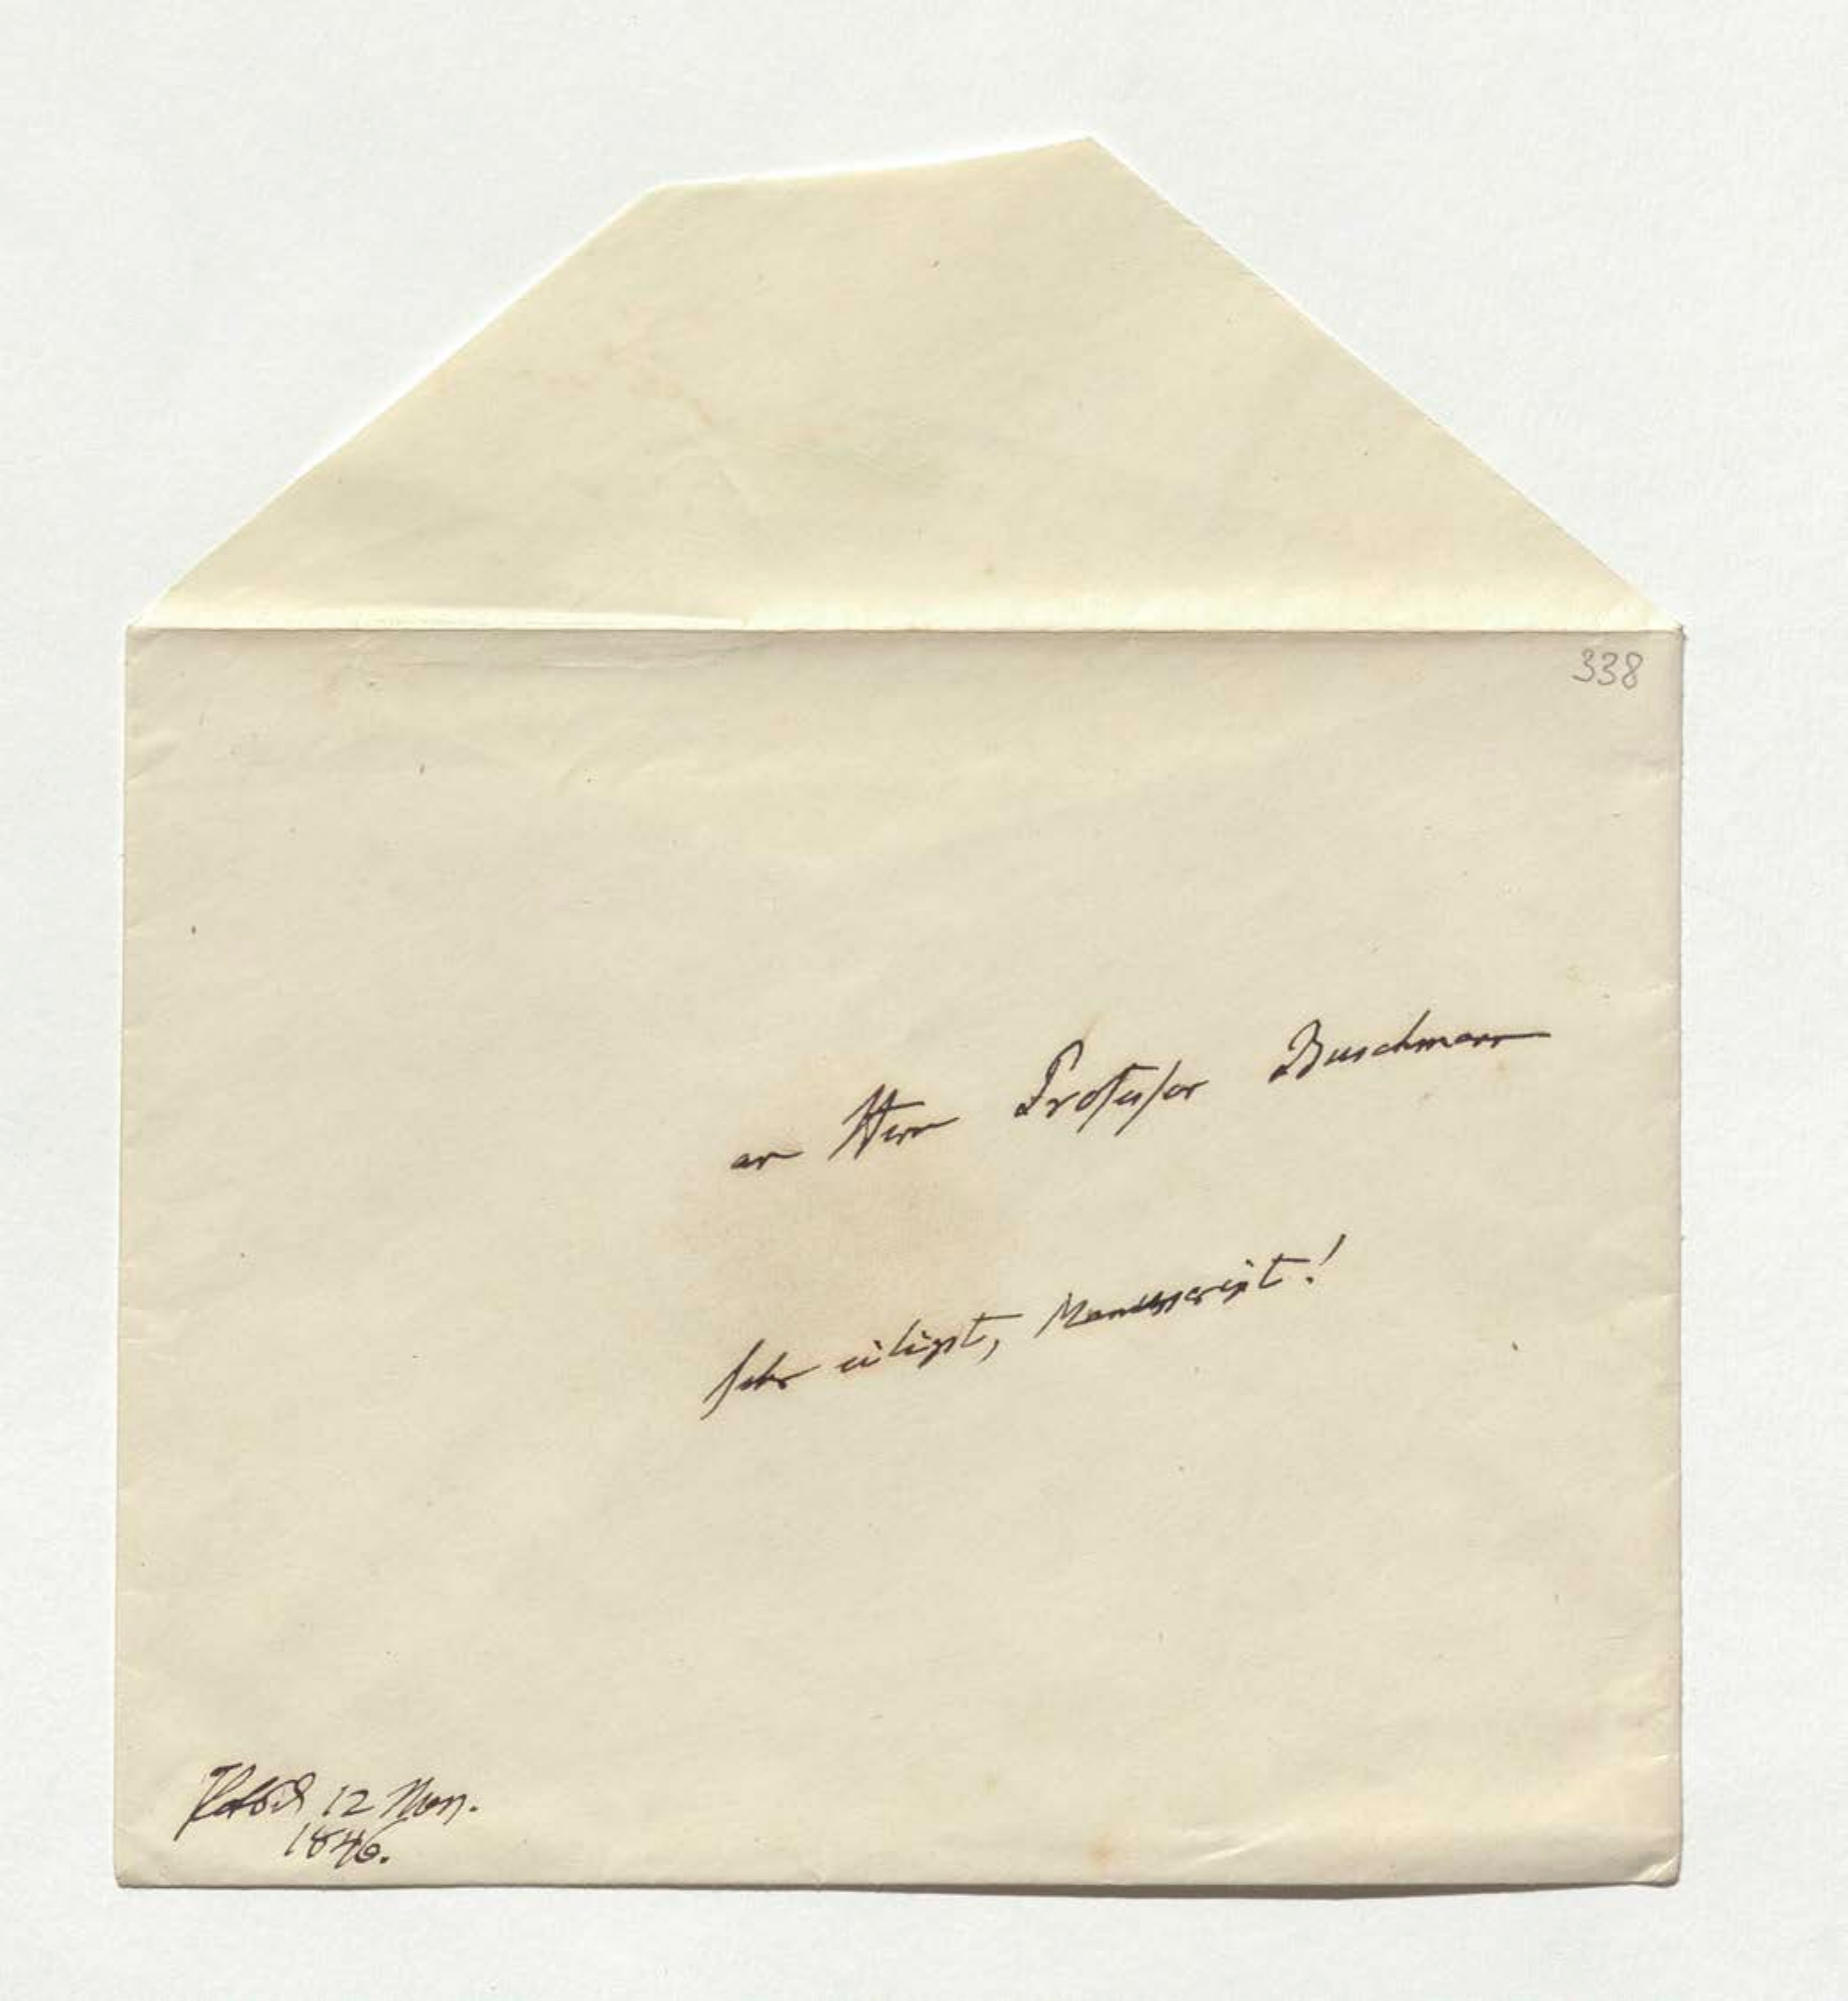 338
an Herrn Professor Buschmann
sehr eiligst, Manuscript!
12
1846.